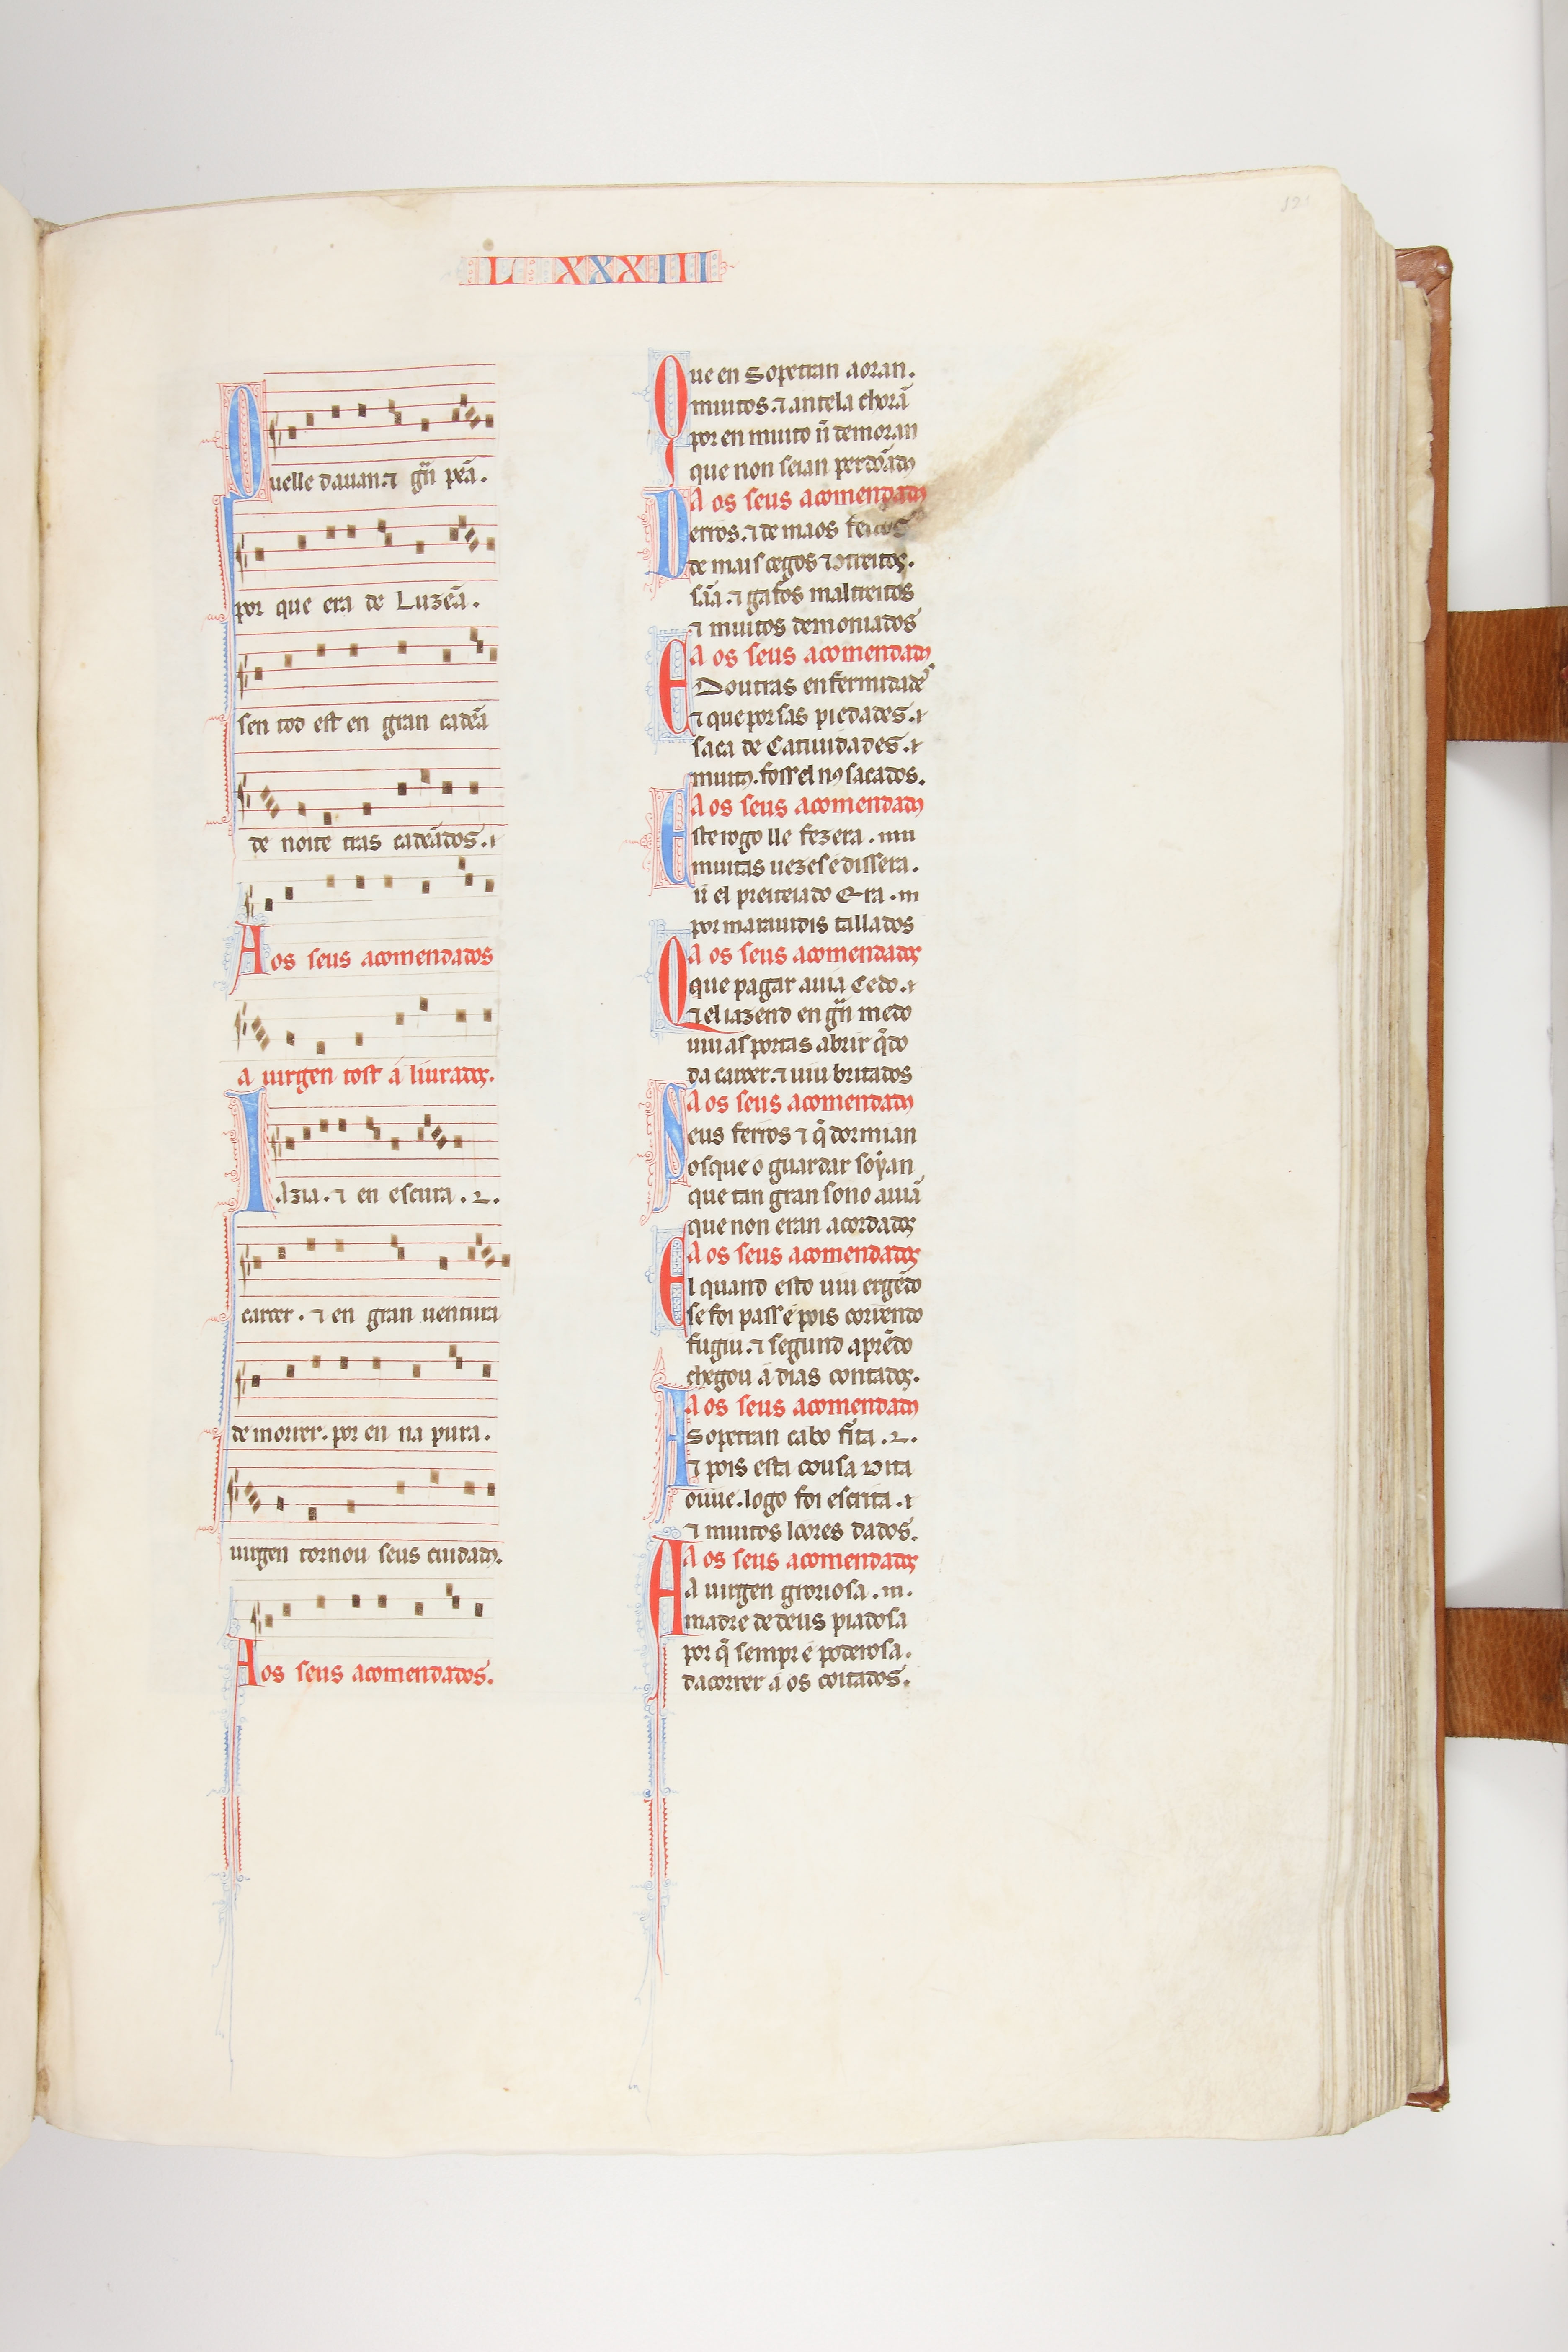 L XXXIII
Quelle dauan. ⁊ gñ peã.
por que era de Luzeã.
sen tod est en gran cadeã
de noite tras cadeãdos.
Aos seus acomendados
a uirgen tost á liurados.
Iazia. ⁊ en escura.
carcer. ⁊ en gran uentura
de morrer. por en na pura.
uirgen tornou seus cuidados.
Aos seus acomendados.
Que en Sopetran aoran.
muitos. ⁊ antela chorã
por en muito nõ demoran
que non seian perdõados
A os seus acomendados
Derros. ⁊ de maos feitos
de mais cegos
sãa. ⁊ gafos maltreitos
⁊ muitos demoniados
A os seus acomendados
E Doutras enfermidades
⁊ que por sas piedades.
saca de Catiuidades.
muitos. foss el nos sacados.
A os seus acomendados
Este rogo lle fezera.
muitas uezes e dissera.
ũ el preiteiado Era.
por marauidis tallados
A os seus acomendados
Que pagar auia Cedo.
⁊ el iazend en gñ medo
uiu as portas abrir qdo
da carcer. ⁊ uiu britados
A os seus acomendados
Seus ferros ⁊ q̃ dormian
os que o guardar soyan
que tan gran sono auiã
que non eran acordados
A os seus acomendados
El quand esto uiu ergẽdo
se foi pass e pois correndo
fugiu. ⁊ segund aprẽdo
chegou a dias contados.
A os seus acomendados
A Sopetran cabo fita.
⁊ pois esta cousa Dita
ouue. logo foi escrita.
⁊ muitos loores dados.
A os seus acomendados
A a uirgen groriosa.
madre de deus piadosa
por q̃ sempr é poderosa.
dacorrer a os coitados.